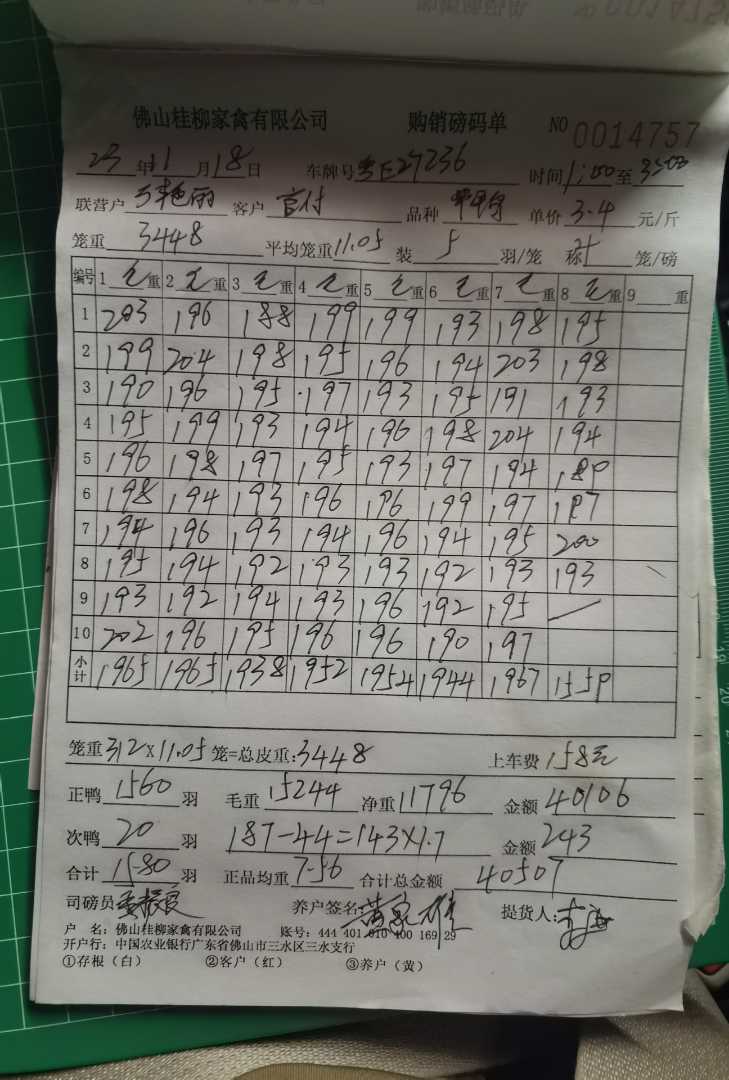 佛山桂柳家禽有限公司 购销磅码单 NO 0014757
23年11月18日 车牌号 粤E27236 时间 1:00至3:00
联营户 客户 官付 品种 单价 3.4 元/斤
笼重 3448 平均笼重 11.05 装 5 羽/笼 称 4 笼/磅
编号 1 毛重 2 毛重 3 毛重 4 毛重 5 毛重 6 毛重 7 毛重 8 毛重 9 重
1 203 196 188 199 199 193 198 195
2 199 204 198 195 196 194 203 198
3 190 196 195 197 193 195 191 193
4 195 199 193 194 196 198 204 194
5 196 198 197 195 193 197 194 189
6 198 194 193 196 196 199 197 197
7 194 196 193 194 196 194 195 200
8 195 194 192 193 193 192 193 193
9 193 192 194 193 196 192 195 —
10 202 196 195 196 196 190 197
小计 1965 1965 1938 1952 1954 1944 1967 1559
笼重 312×11.05 笼=总皮重:3448 上车费 158元
正鸭 1560 羽 毛重 15244 净重 11796 金额 40106
次鸭 20 羽 187-44=143×1.7 金额 243
合计 1580 羽 正品均重 7.56 合计总金额 40507
司磅员 养户签名: 提货人:
户 名:佛山桂柳家禽有限公司 账号:444 401 010 400 169 29
开户行:中国农业银行广东省佛山市三水区三水支行
①存根(白) ②客户(红) ③养户(黄)